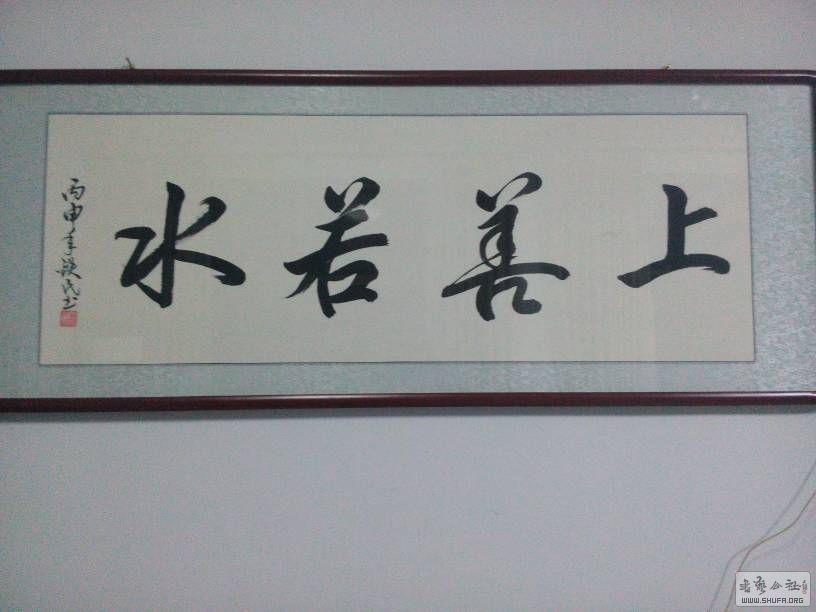 上善若水
丙申年
书
书艺公社
WWW.SHUFA.ORG